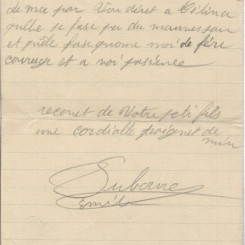 de mee par Vou diret a Célina
quelle se fase pas du mauvessan
et quelle fase gnome moi de fére
courage et a moi pasience
recevet de Votre peti fils
une cordialle poignet de
min
Dubovre
Emile